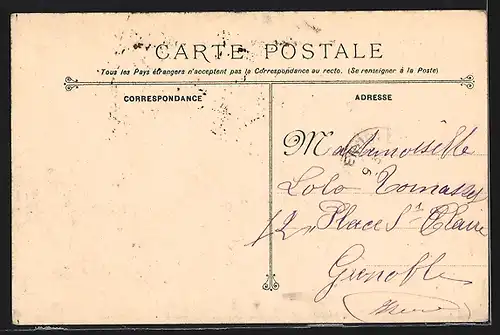 CARTE POSTALE
"Tous les Pays étrangers n'acceptent pas la Correspondance au recto. (Se renseigner à la Poste)
CORRESPONDANCE
ADRESSE
Mademoiselle
Lolo Tomassy
12, Place Ste Claire
Grenoble
(Isère)